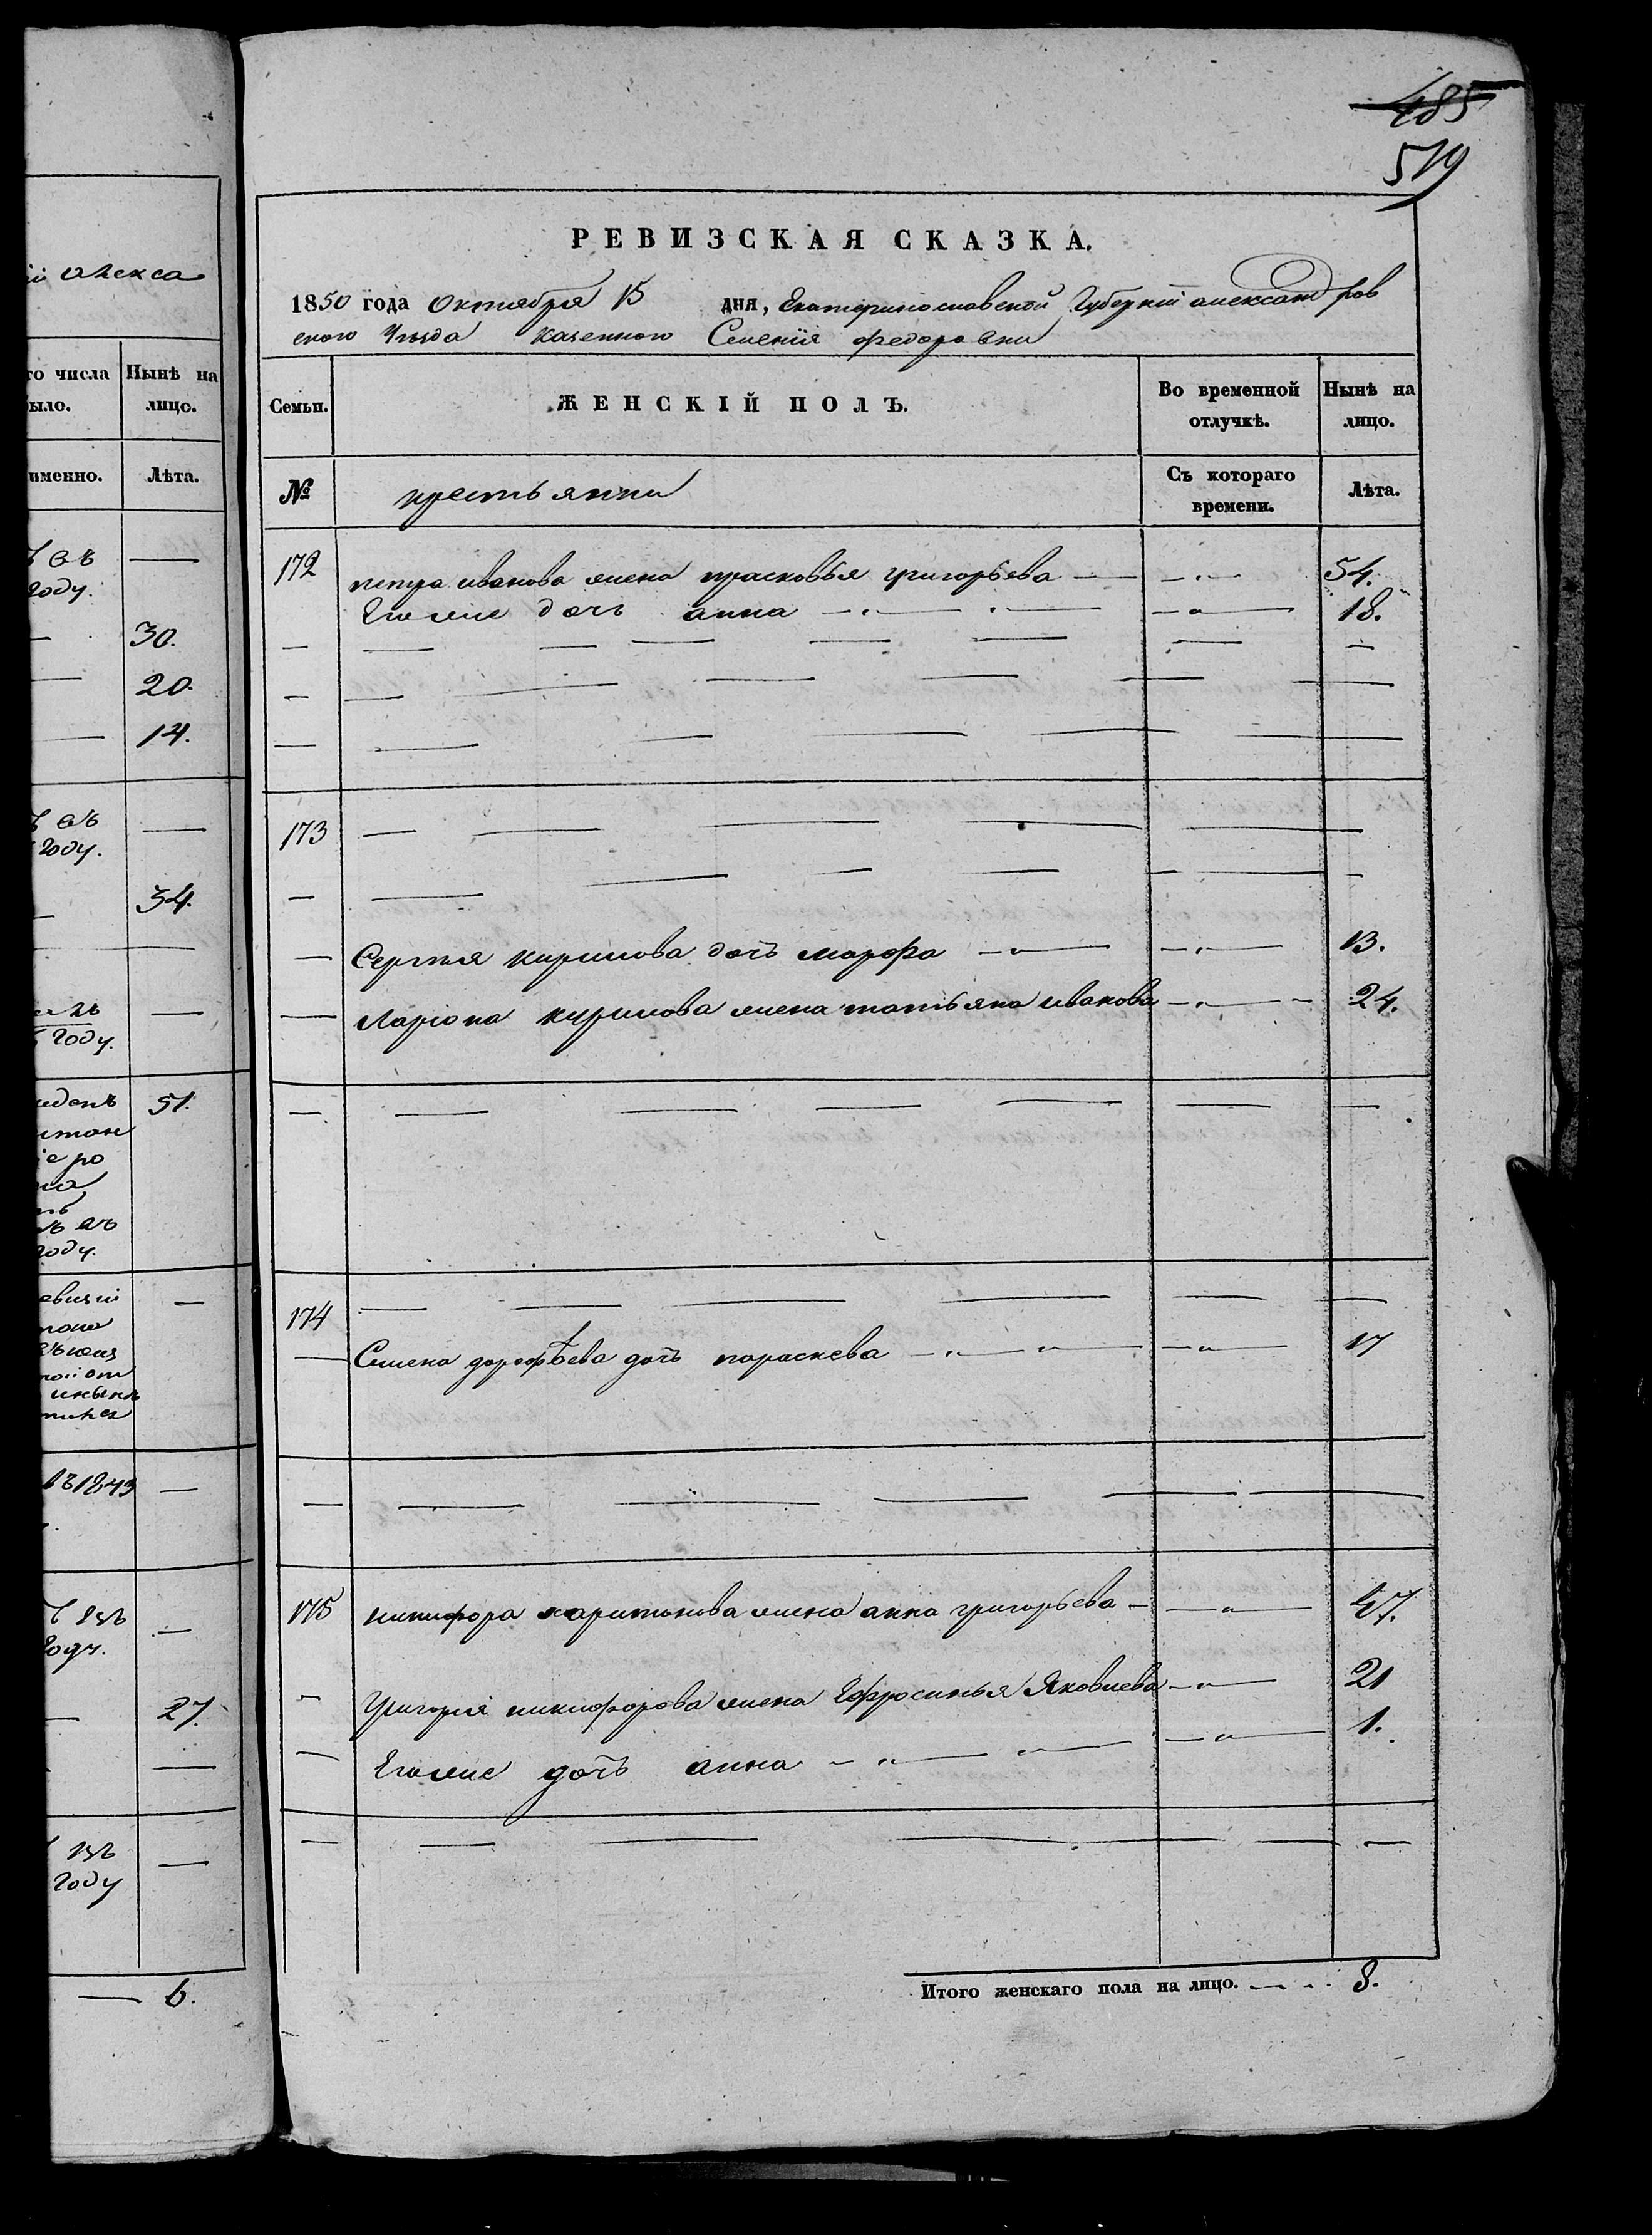 й Алекса
го числа
Нынѣ на
ыло.
лицо.
именно.
Лѣта.
году.
30.
20.
14.
году.
34.
году.
51.
году.
въ 1843
27.
году
6.
485
519
РЕВИЗСКАЯ СКАЗКА.
1850 года Октября 15 дня, Екатеринославской Губерніи александров
ского Уезда казенного Селенія федоровки
Семьи.
ЖЕНСКІЙ ПОЛЪ.
Во временной
отлучкѣ.
Нынѣ на
лицо.
№
крестьянки
Съ котораго
времени.
Лѣта.
172 петра иванова жена прасковья григорьева — 54.
Егоже дочь анна — 18.
173
Сергѣя кирилова дочь марфа — 13.
Ларіона кирилова жена татьяна иванова — 24.
174
Семена дорофѣева дочь параскева — 17
175 никифора харитонова жена анна григорьева — 47.
Григорія никифорова жена Ефросинья Яковлева — 21
Егоже дочь анна — 1.
Итого женскаго пола на лицо. — 8.